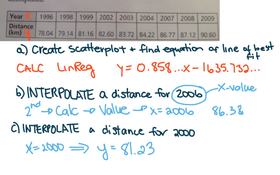 Year x 1996 1998 2000 2002 2004 2007 2008 2009
Distance (km) 78.04 79.14 81.16 82.60 83.72 84.22 86.77 87.12 90.60
a) Create Scatterplot + find equation of line of best fit
CALC LinReg y = 0.858...x - 1635.732...
b) INTERPOLATE a distance for 2006 x-value
2nd → Calc → Value → x = 2006 86.38
c) INTERPOLATE a distance for 2000
x = 2000 ⟹ y = 81.23